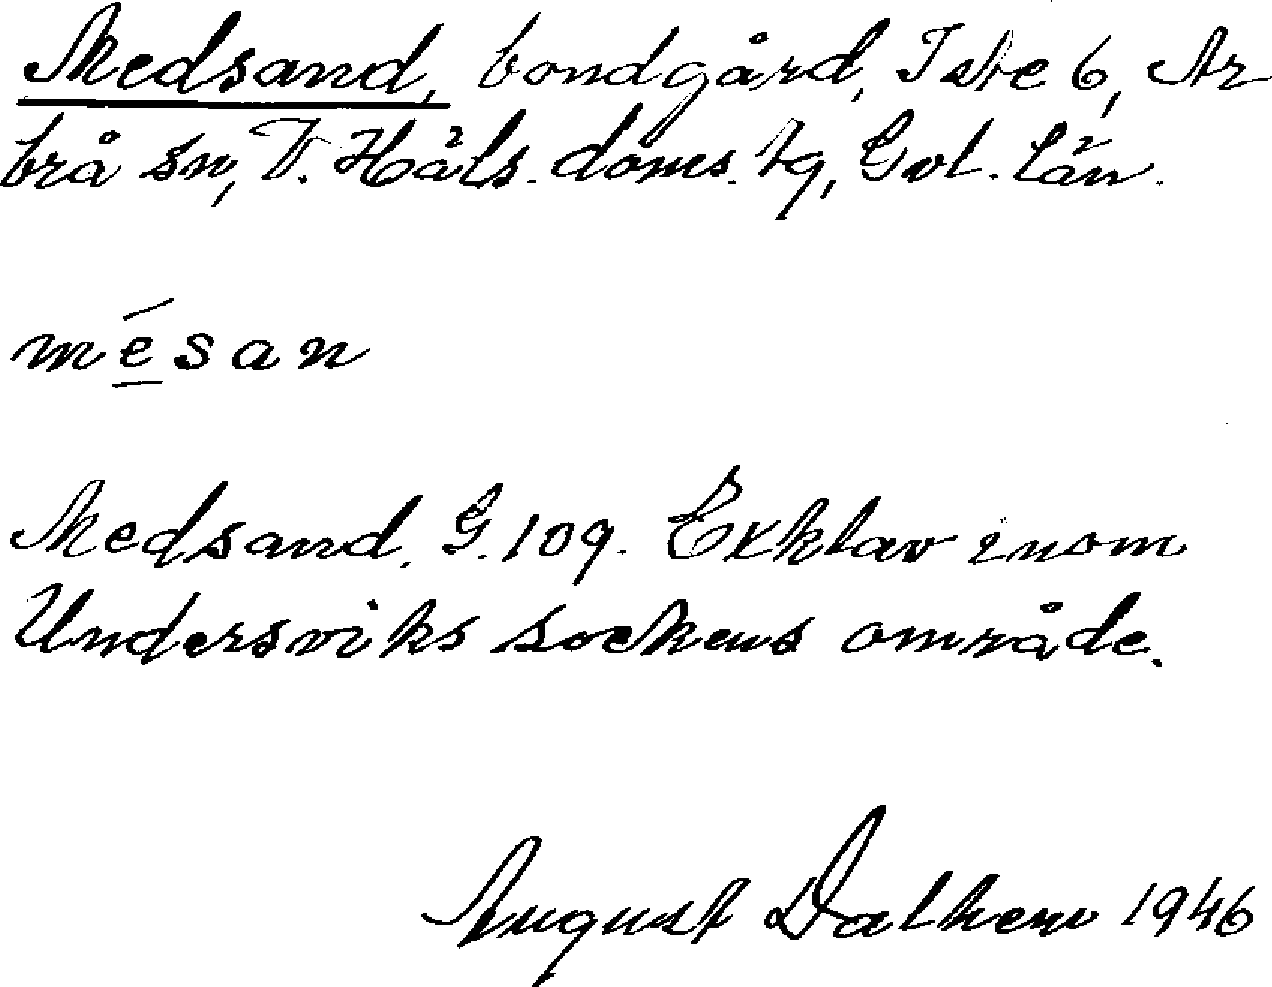 Medsand, bondgård, Iste 6, Ar
brå sn, V. Häls. doms. tg, Gvl. län.
mésan
Medsand. G. 109. Exklav inom
Undersviks sockens område.
August Dalhem 1946